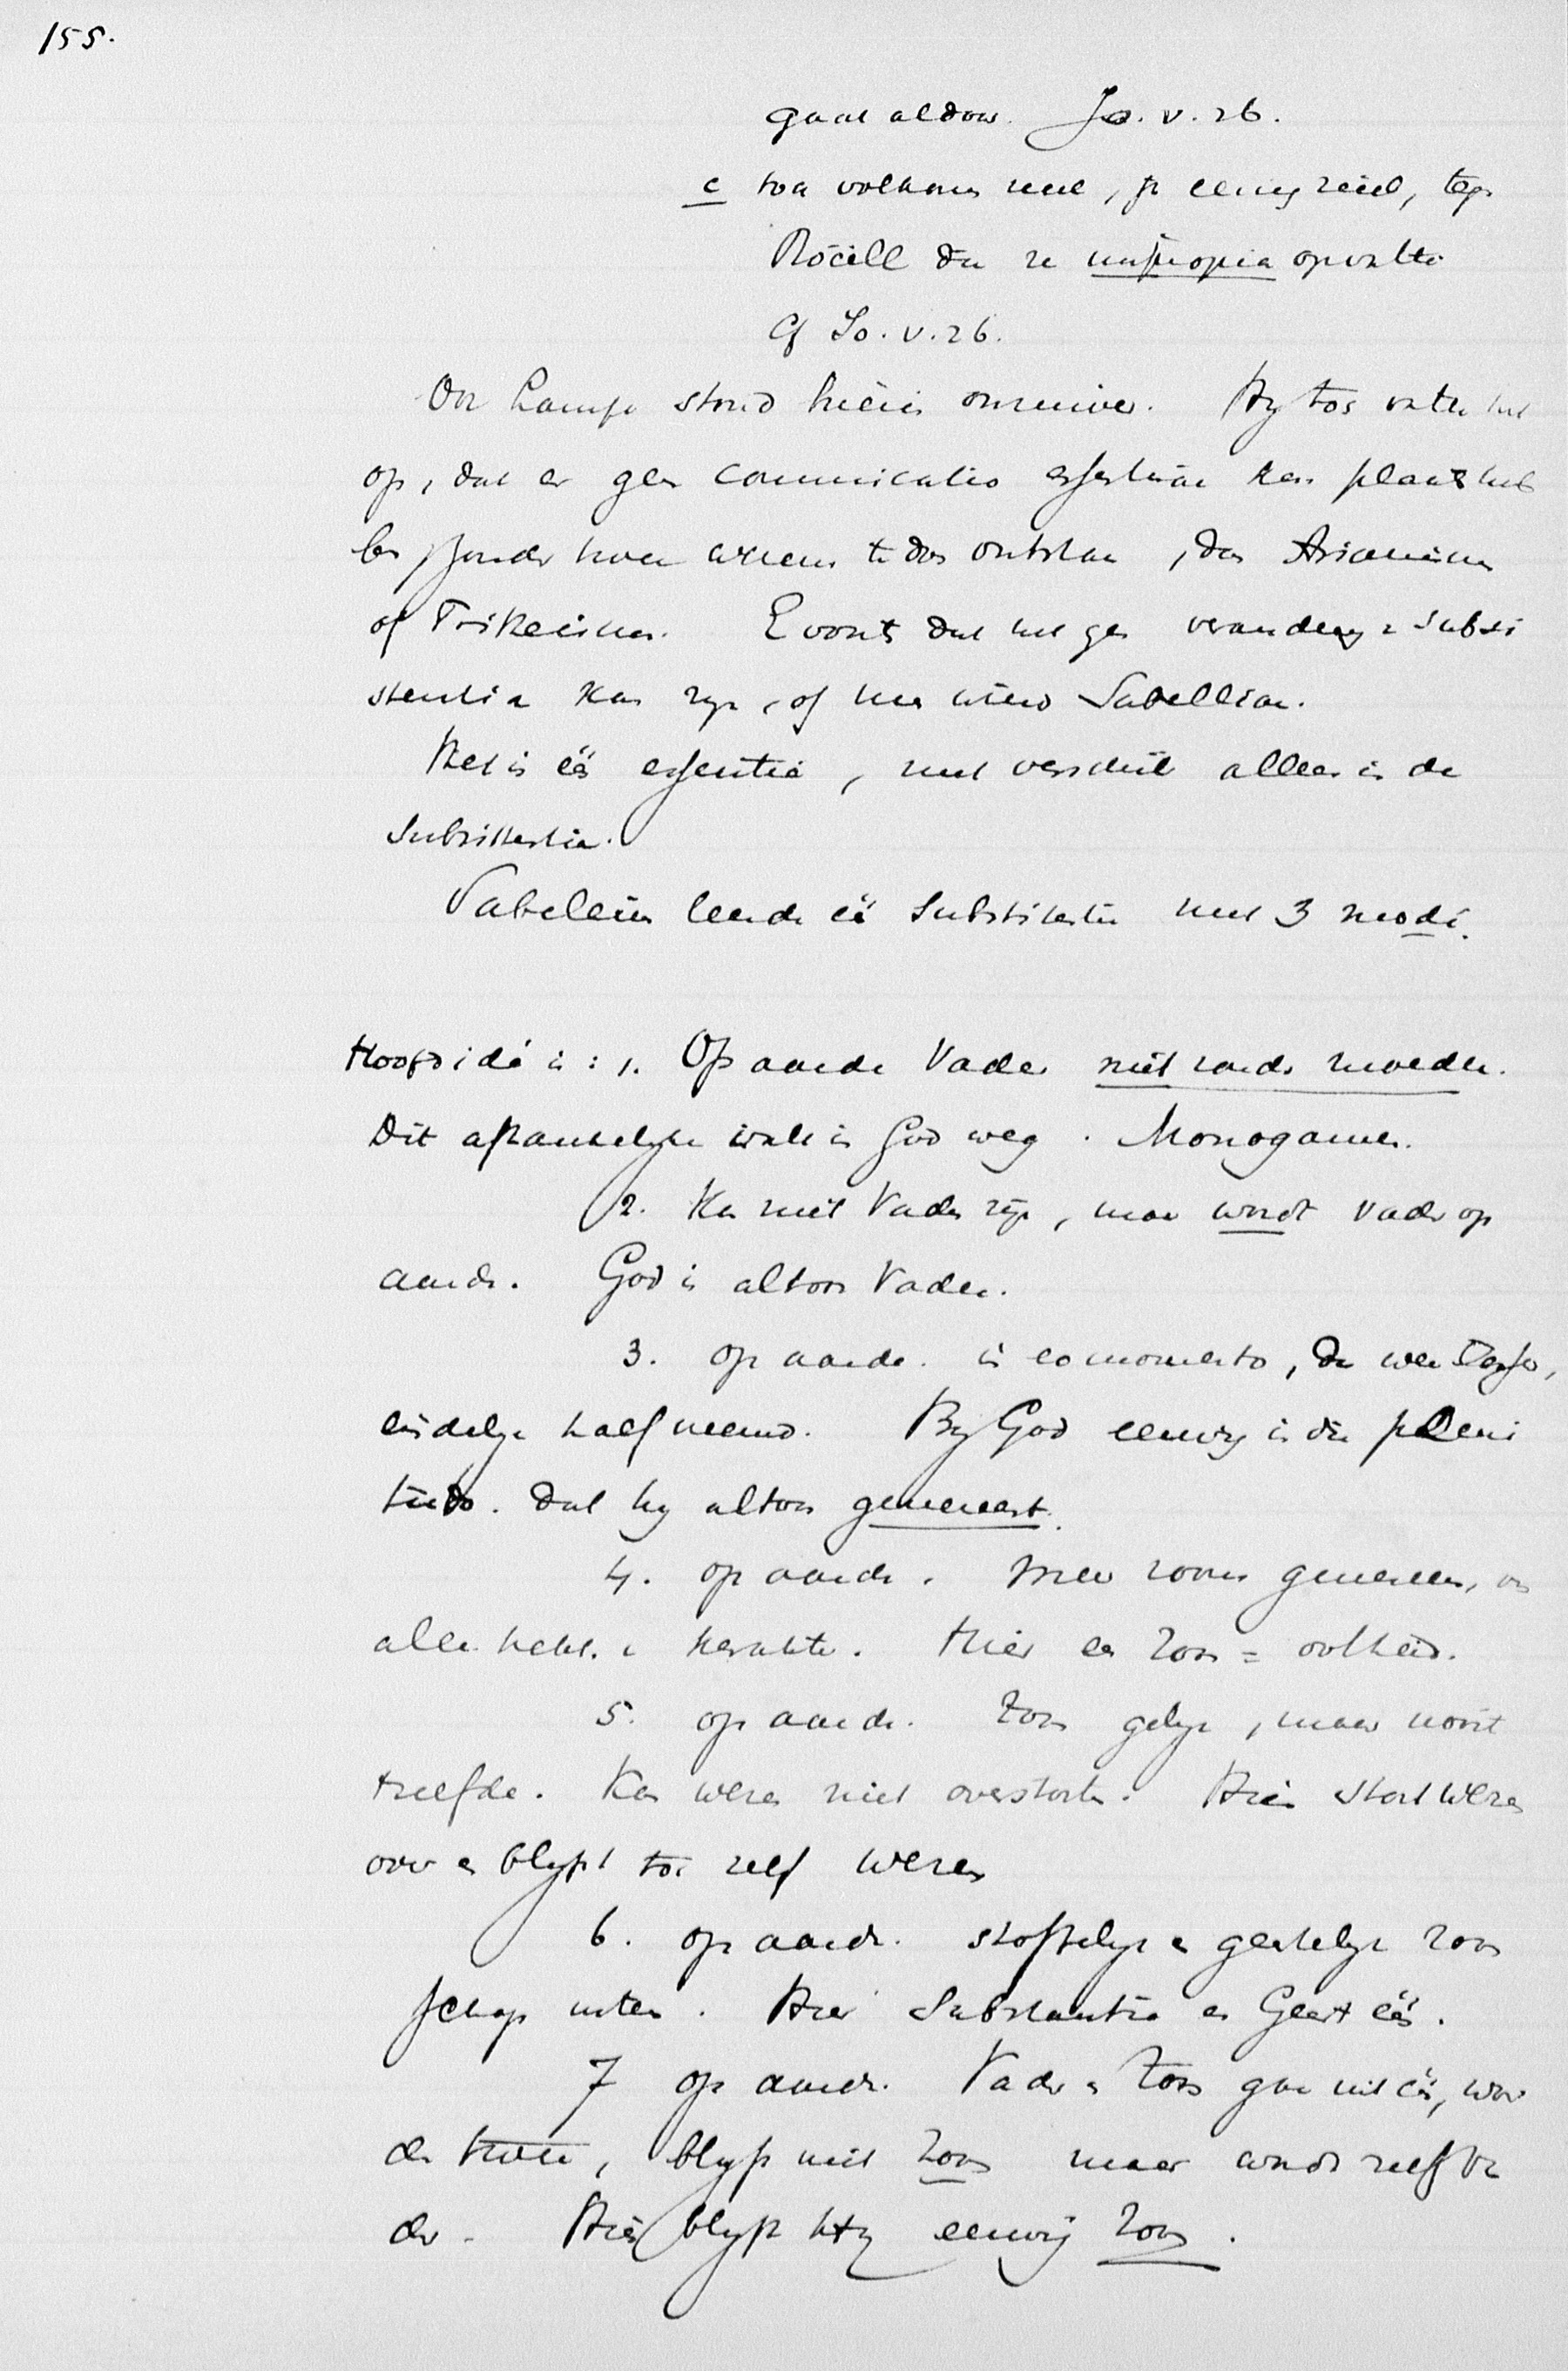 155.
gaat aldoor. Jo. v. 26.
c
Röell die ze impropria opvatte
Cf Jo. v. 26.
Ook Lampe stond hierin onzuiver. Hy toch vatte het
op, dat er geen communicatio essentiae kan plaats heb
ben, zonder twee wezens te doen ontstaan, dus Arianism
of Tritheisme. Evont dat het geen verandering v subsi
stentia kan zyn, of men wierd Sabelliaan.
Het is één essentia, met verschil alleen in de
subsistentia.
Sabellius leerde één Subsistentie met 3 modi.
Hoofdidé is: 1. Op aarde Vader niet zonder moeder.
Dit afhankelyke valt in God weg. Monogamie.
2. Kan niet Vader zyn, maar wordt vader op
aarde. God is altoos Vader.
3. op aarde. is eo momento,
eindelyk half neemt. By God eeuwig in die pleni
tudo. Dat hy altoos genereert.
4. op aarde. Meer zonen genereeren, en
alle hebb. Hier een Zoon = volheid.
5. op aarde. Zoon gelyk, maar nooit
tzelfde. Kan wezen niet overstorten. Hier stort wezen
over en blyft toch zelf wezen
6. op aarde. stoffelyk en geestelyk zoon
schap uiteen. Hier Substantia en Geest één.
7 op aarde. Vader en Zoon gaan uit één, wor
den twee, blyft niet Zoon maar wordt zelf va
der. Hier blyft Hy eeuwig Zoon.